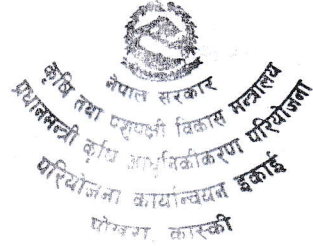 नेपाल सरकार
कृषि तथा पशुपंक्षी विकास मन्त्रालय
प्रधानमन्त्री कृषि आधुनिकीकरण परियोजना
परियोजना कार्यान्वयन इकाई
पोखरा, कास्की